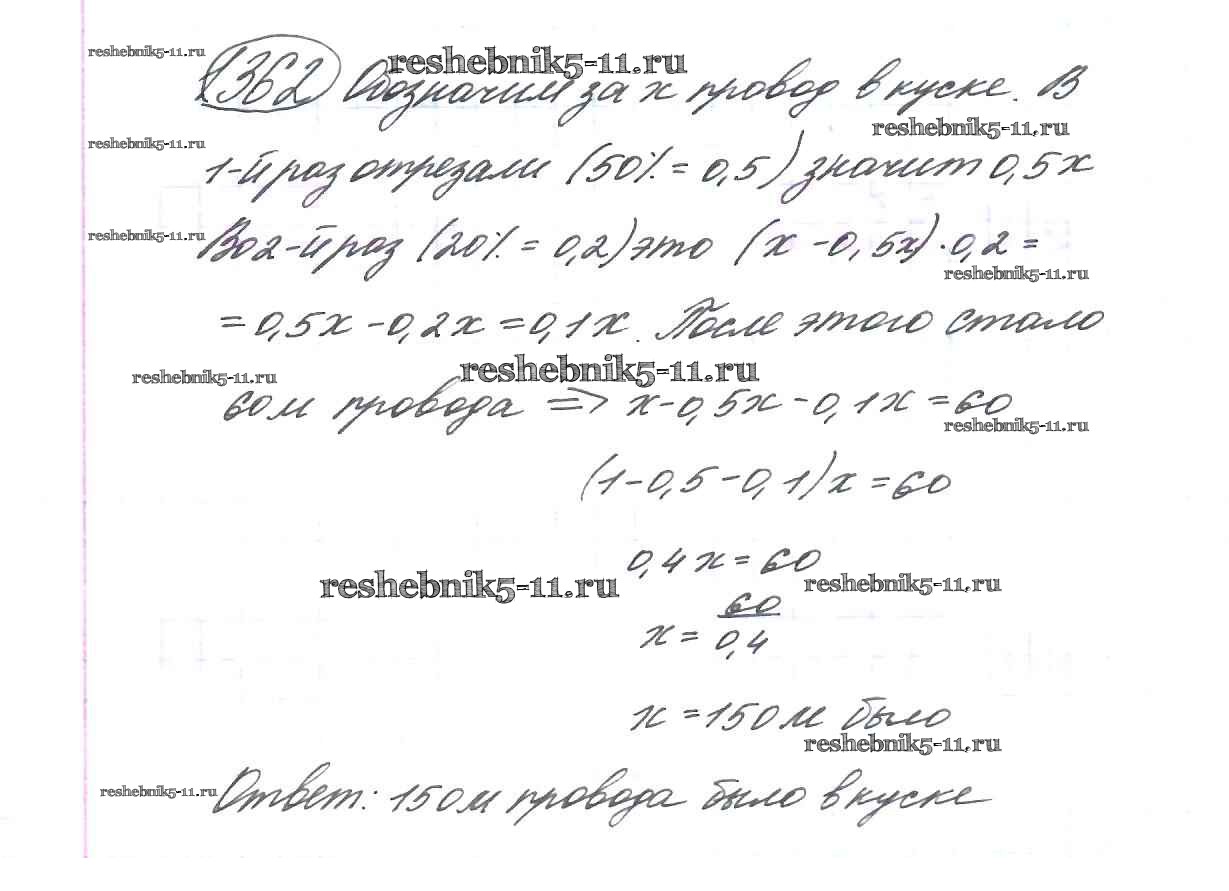 reshebnik5-11.ru
reshebnik5-11.ru
1362 Обозначим за x провод в куске. В
reshebnik5-11.ru
reshebnik5-11.ru
1-й раз отрезали (50% = 0,5) значит 0,5x
reshebnik5-11.ru
Во 2-й раз (20% = 0,2) это (x - 0,5x) · 0,2 =
reshebnik5-11.ru
= 0,5x - 0,2x = 0,1x. После этого стало
reshebnik5-11.ru
reshebnik5-11.ru
60м провода => x - 0,5x - 0,1x = 60
reshebnik5-11.ru
(1 - 0,5 - 0,1)x = 60
0,4x = 60
reshebnik5-11.ru
reshebnik5-11.ru
x = 60/0,4
x = 150м было
reshebnik5-11.ru
reshebnik5-11.ru
Ответ: 150м провода было в куске